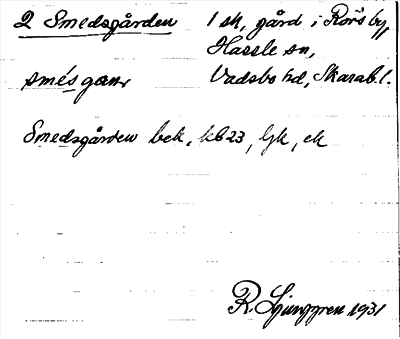 2 Smedsgården 1 sk, gård i Rörs by,
Hassle sn,
smésgɑɳ Vadsbo hd, Skarab. l.
Smedsgården bek, kb 23, Gk, ek
R Ljunggren 1931